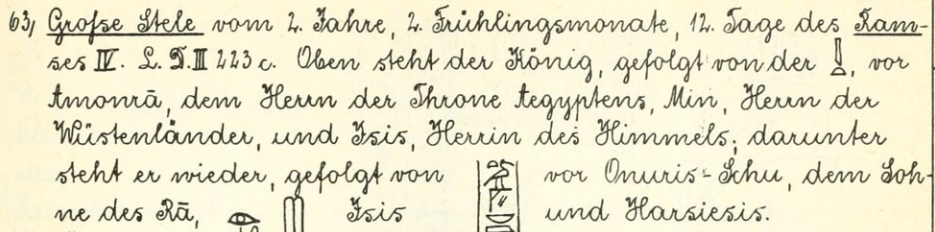 63, Große Stele vom 2. Jahre, 2. Frühlingsmonate, 12. Tage des Ram-
ses IV. L. D. III 223 c. Oben steht der König, gefolgt von der , vor
Amonrā, dem Herrn der Throne Aegyptens, Min, Herrn der
Wüstenländer, und Isis, Herrin des Himmels; darunter
steht er wieder, gefolgt von vor Onuris-Schu, dem Soh-
ne des Rā, Isis und Harsiesis.